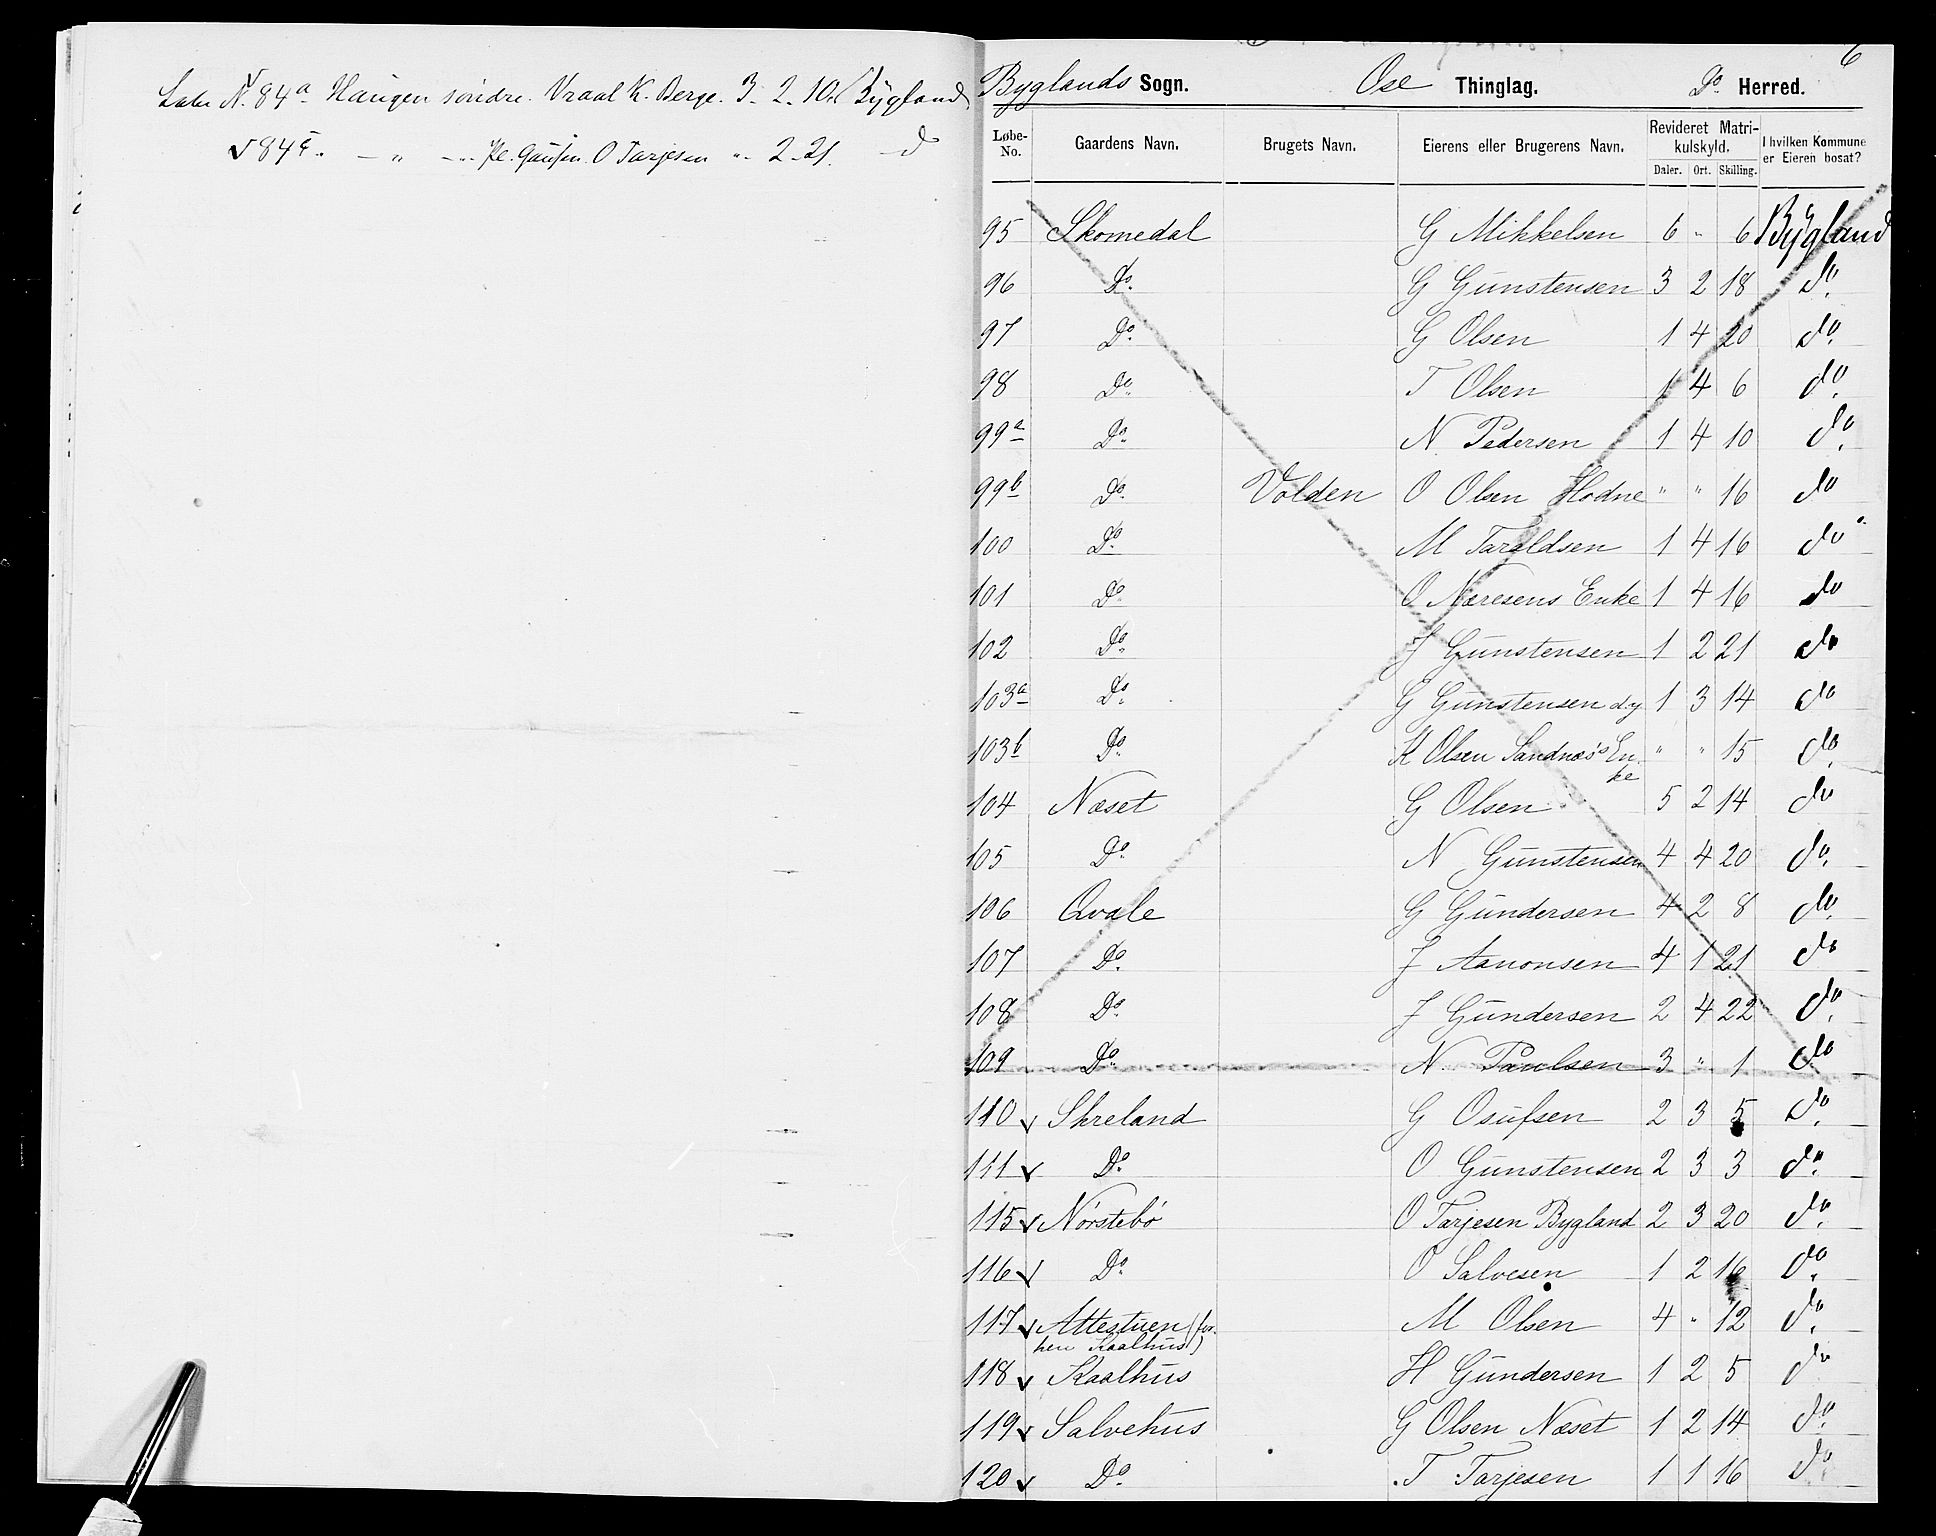 N. 84a Haugen söndre. Vraal K. Berge. 3. 2. 10. Bygland
84c. — „ — O Tarjesen „ 2. 21. — d
6
Byglands Sogn. Ose Thinglag. Do Herred.
Løbe-No. Gaardens Navn. Brugets Navn. Eierens eller Brugerens Navn. Revideret Matrikulskyld. Daler. Ort. Skilling. I hvilken Kommune er Eieren bosat?
95 Skomedal G Mikkelsen 6 „ 6 Bygland
96 Do. G Gunstensen 3 2 18 do.
97 Do. G Olsen 1 4 20 do.
98 Do. T Olsen 1 4 6 do.
99a Do. N. Pedersen 1 4 10 do.
99b Do. Volden O Olsen Hodne „ „ 16 do
100 Do. M Taraldsen 1 4 16 do
101 Do. O Næresens Enke 1 4 16 do
102 Do. J Gunstensen 1 2 21 do
103a Do. G Gunstensen d.y 1 3 14 do
103b Do. K Olsen Sandnæs's Enke „ „ 15 do.
104 Næset G Olsen 5 2 14 do
105 Do. N Gunstensen 4 4 20 do.
106 Qvale G Gundersen 4 2 8 do.
107 Do. J Aanonsen 4 1 21 do
108 Do. J Gundersen 2 4 22 do.
109 Do. N. Paulsen 3 „ 1 do
110 Skreland G Osufsen 2 3 5 do.
111 Do. O Gunstensen 2 3 3 do.
115 Nörstebö O Tarjesen Bygland 2 3 20 do.
116 Do. O Salvesen 1 2 16 do.
117 Attestuen (forhen Kaalhus) M Olsen 4 „ 12 do.
118 Kaalhus H Gundersen 1 2 5 do
119 Salvehus G Olsen Næset 1 2 14 do.
120 Do. T Tarjesen 1 1 16 do